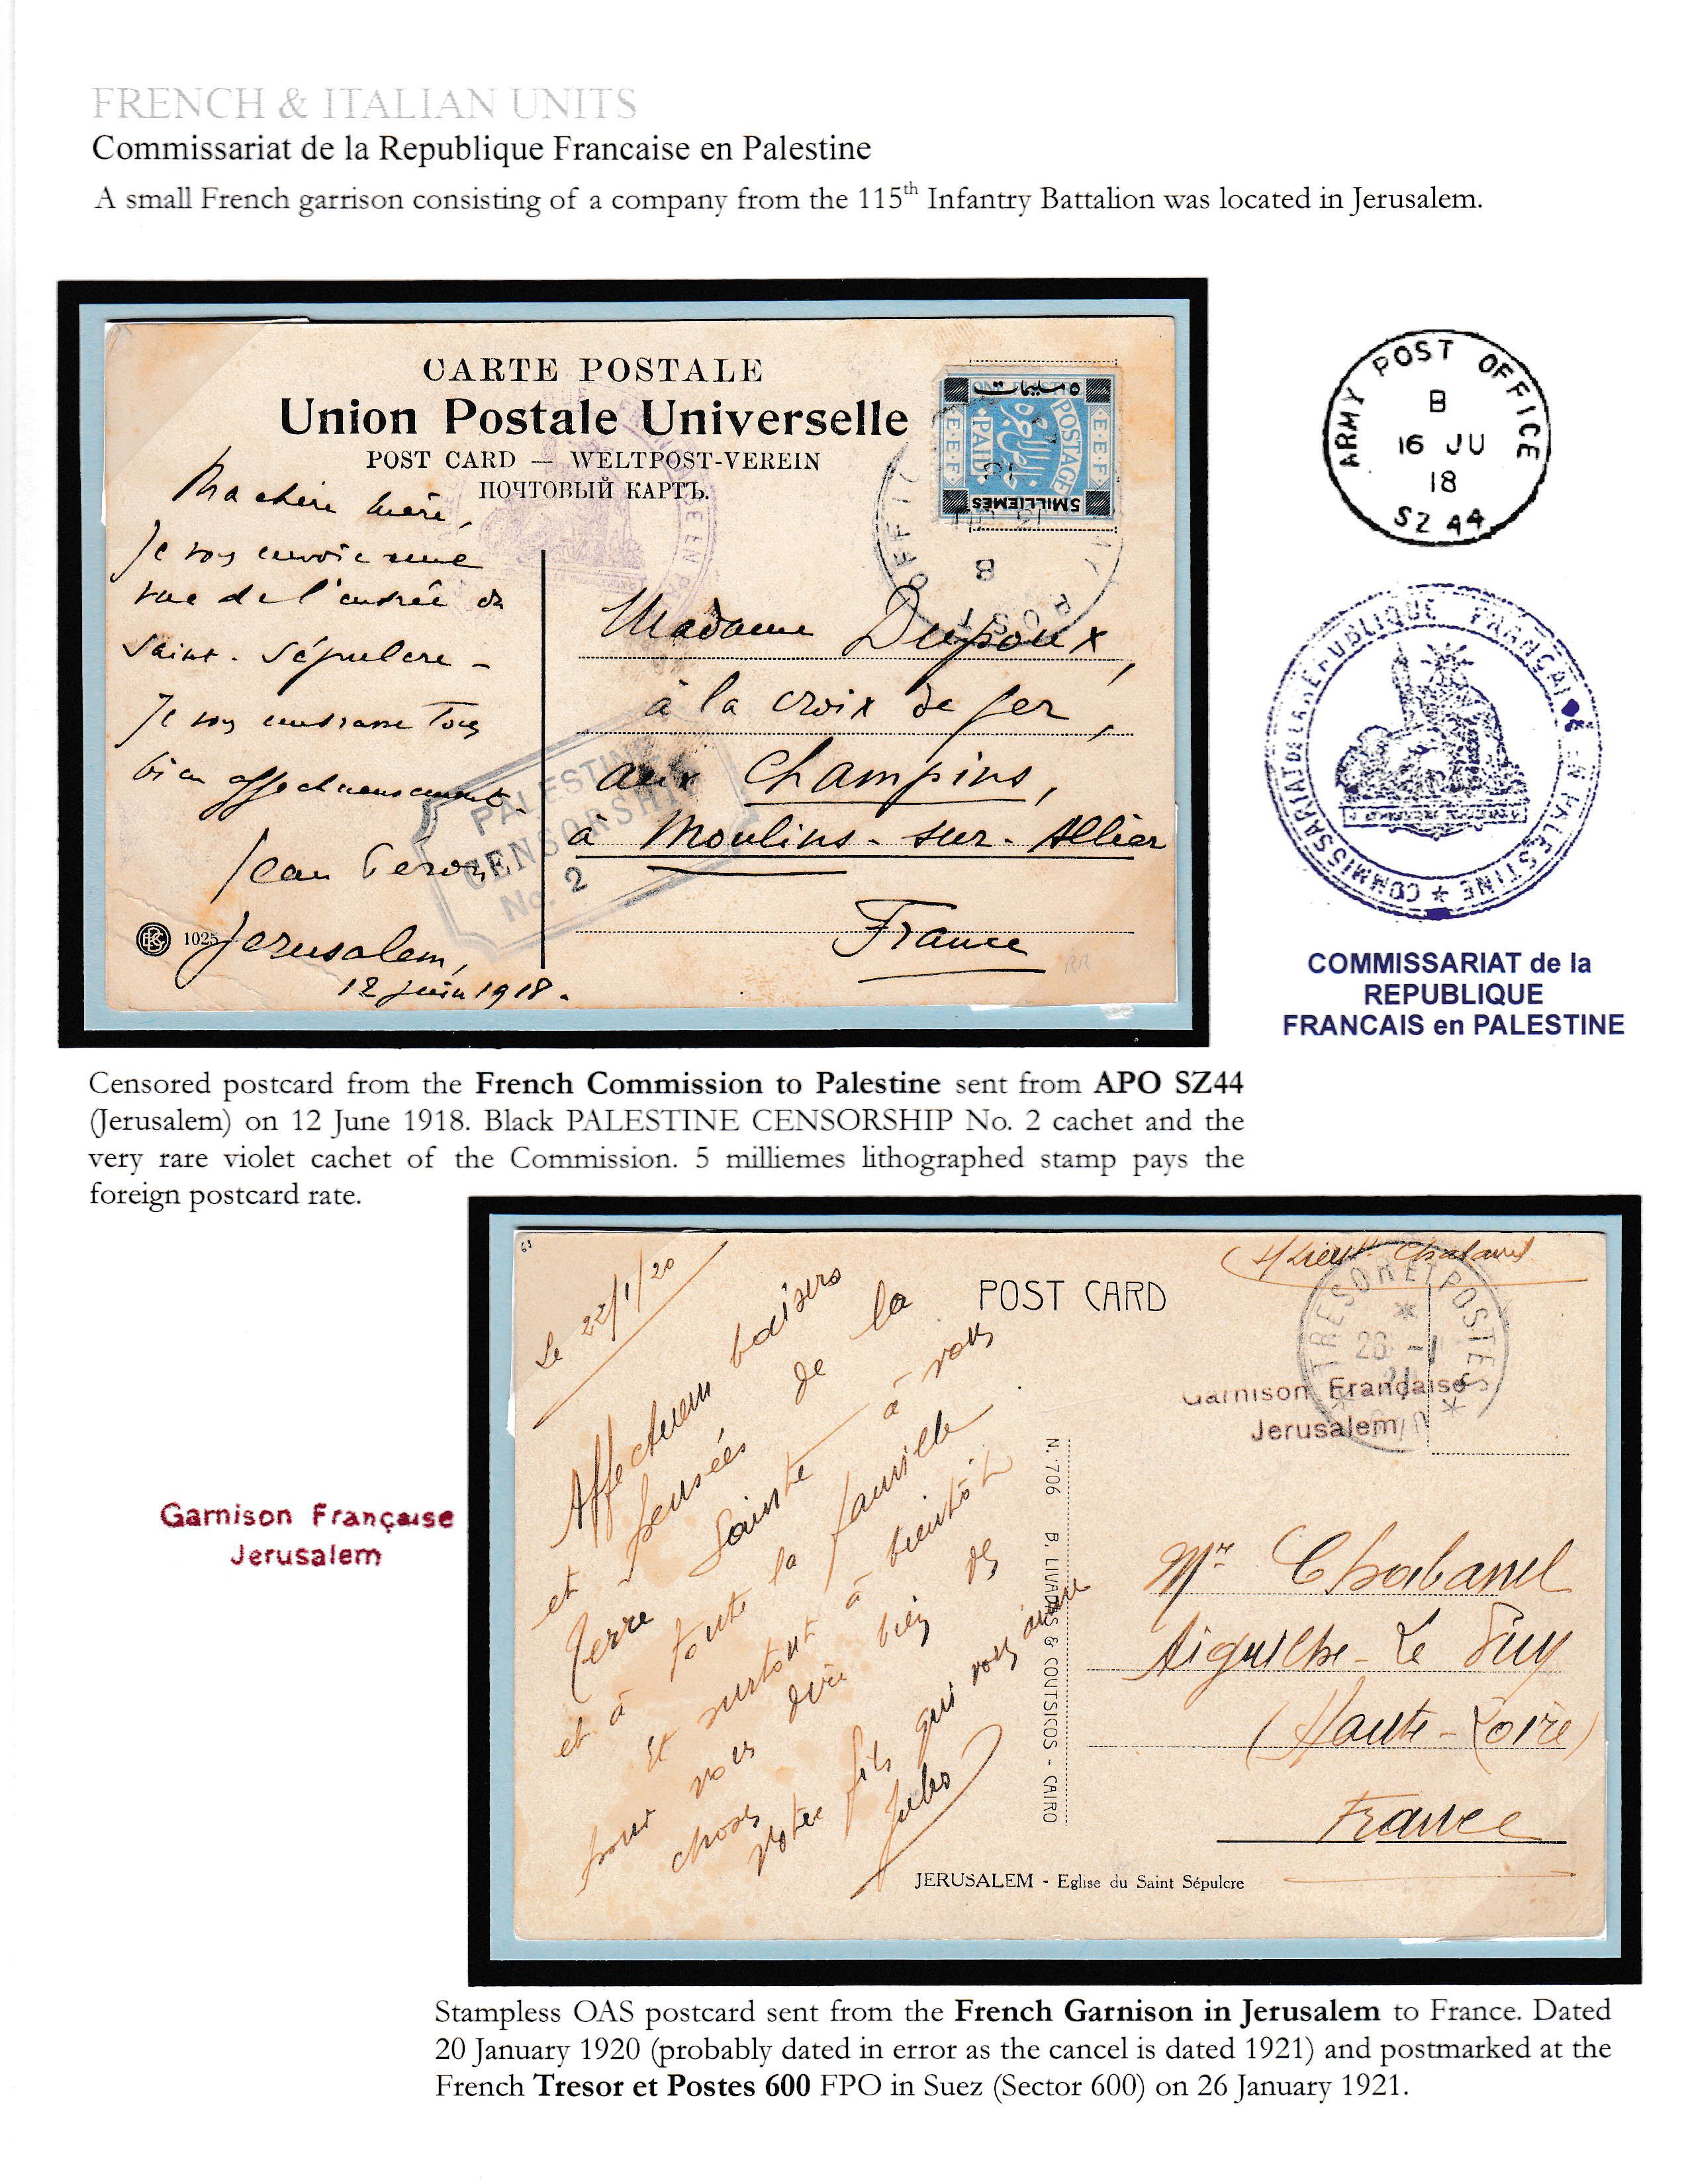 FRENCH & ITALIAN UNITS
Commissariat de la Republique Francaise en Palestine
A small French garrison consisting of a company from the 115th Infantry Battalion was located in Jerusalem.
CARTE POSTALE
Union Postale Universelle
POST CARD — WELTPOST-VEREIN
ПОЧТОВЫЙ КАРТЪ.
Ma chère mère,
Je vous envoie une
vue de l'entrée du
Saint-Sépulcre -
Je vous embrasse tous
bien affectueusement.
Jean
Jerusalem,
12 Juin 1918.
1025
E.E.F.
POSTAGE
PAID
E.E.F.
5 MILLIEMES
OFFIC
POST
B
Madame Dupoux,
à la croix de fer,
aux Champins,
à Moulins-sur-Allier
France
RR
PALESTINE
CENSORSHIP
No. 2
ARMY POST OFFICE
B
16 JU
18
SZ 44
COMMISSARIAT DE LA REPUBLIQUE FRANÇAISE EN PALESTINE *
COMMISSARIAT de la
REPUBLIQUE
FRANCAIS en PALESTINE
Censored postcard from the French Commission to Palestine sent from APO SZ44
(Jerusalem) on 12 June 1918. Black PALESTINE CENSORSHIP No. 2 cachet and the
very rare violet cachet of the Commission. 5 milliemes lithographed stamp pays the
foreign postcard rate.
Le 22/1/20
Affectueux baisers
et pensées de la
Terre Sainte à vous
et à toute la famille
et surtout à bientôt
pour vous dire bien des
choses
Votre fils qui vous aime
POST CARD
TRESOR ET POSTES
26 -1
Garnison Française
Jerusalem
N. 706 B. LIVADAS & COUTSICOS - CAIRO
Mr Chabanel
Aiguilhe-Le Puy
(Haute-Loire)
France
JERUSALEM - Eglise du Saint Sépulcre
Garnison Française
Jerusalem
Stampless OAS postcard sent from the French Garnison in Jerusalem to France. Dated
20 January 1920 (probably dated in error as the cancel is dated 1921) and postmarked at the
French Tresor et Postes 600 FPO in Suez (Sector 600) on 26 January 1921.